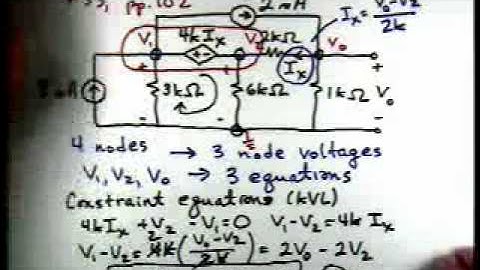 pp. 102
2mA
Ix = Vo-V2/2k
V1 4kIx V2 2kΩ Vo
+ - + + Ix +
mA 3kΩ 6kΩ 1kΩ Vo
- - -
4 nodes → 3 node voltages
V1, V2, Vo → 3 equations
Constraint equations (KVL)
4kIx + V2 - V1 = 0 V1 - V2 = 4k Ix
V1 - V2 = 4k(Vo-V2/2k) = 2Vo - 2V2